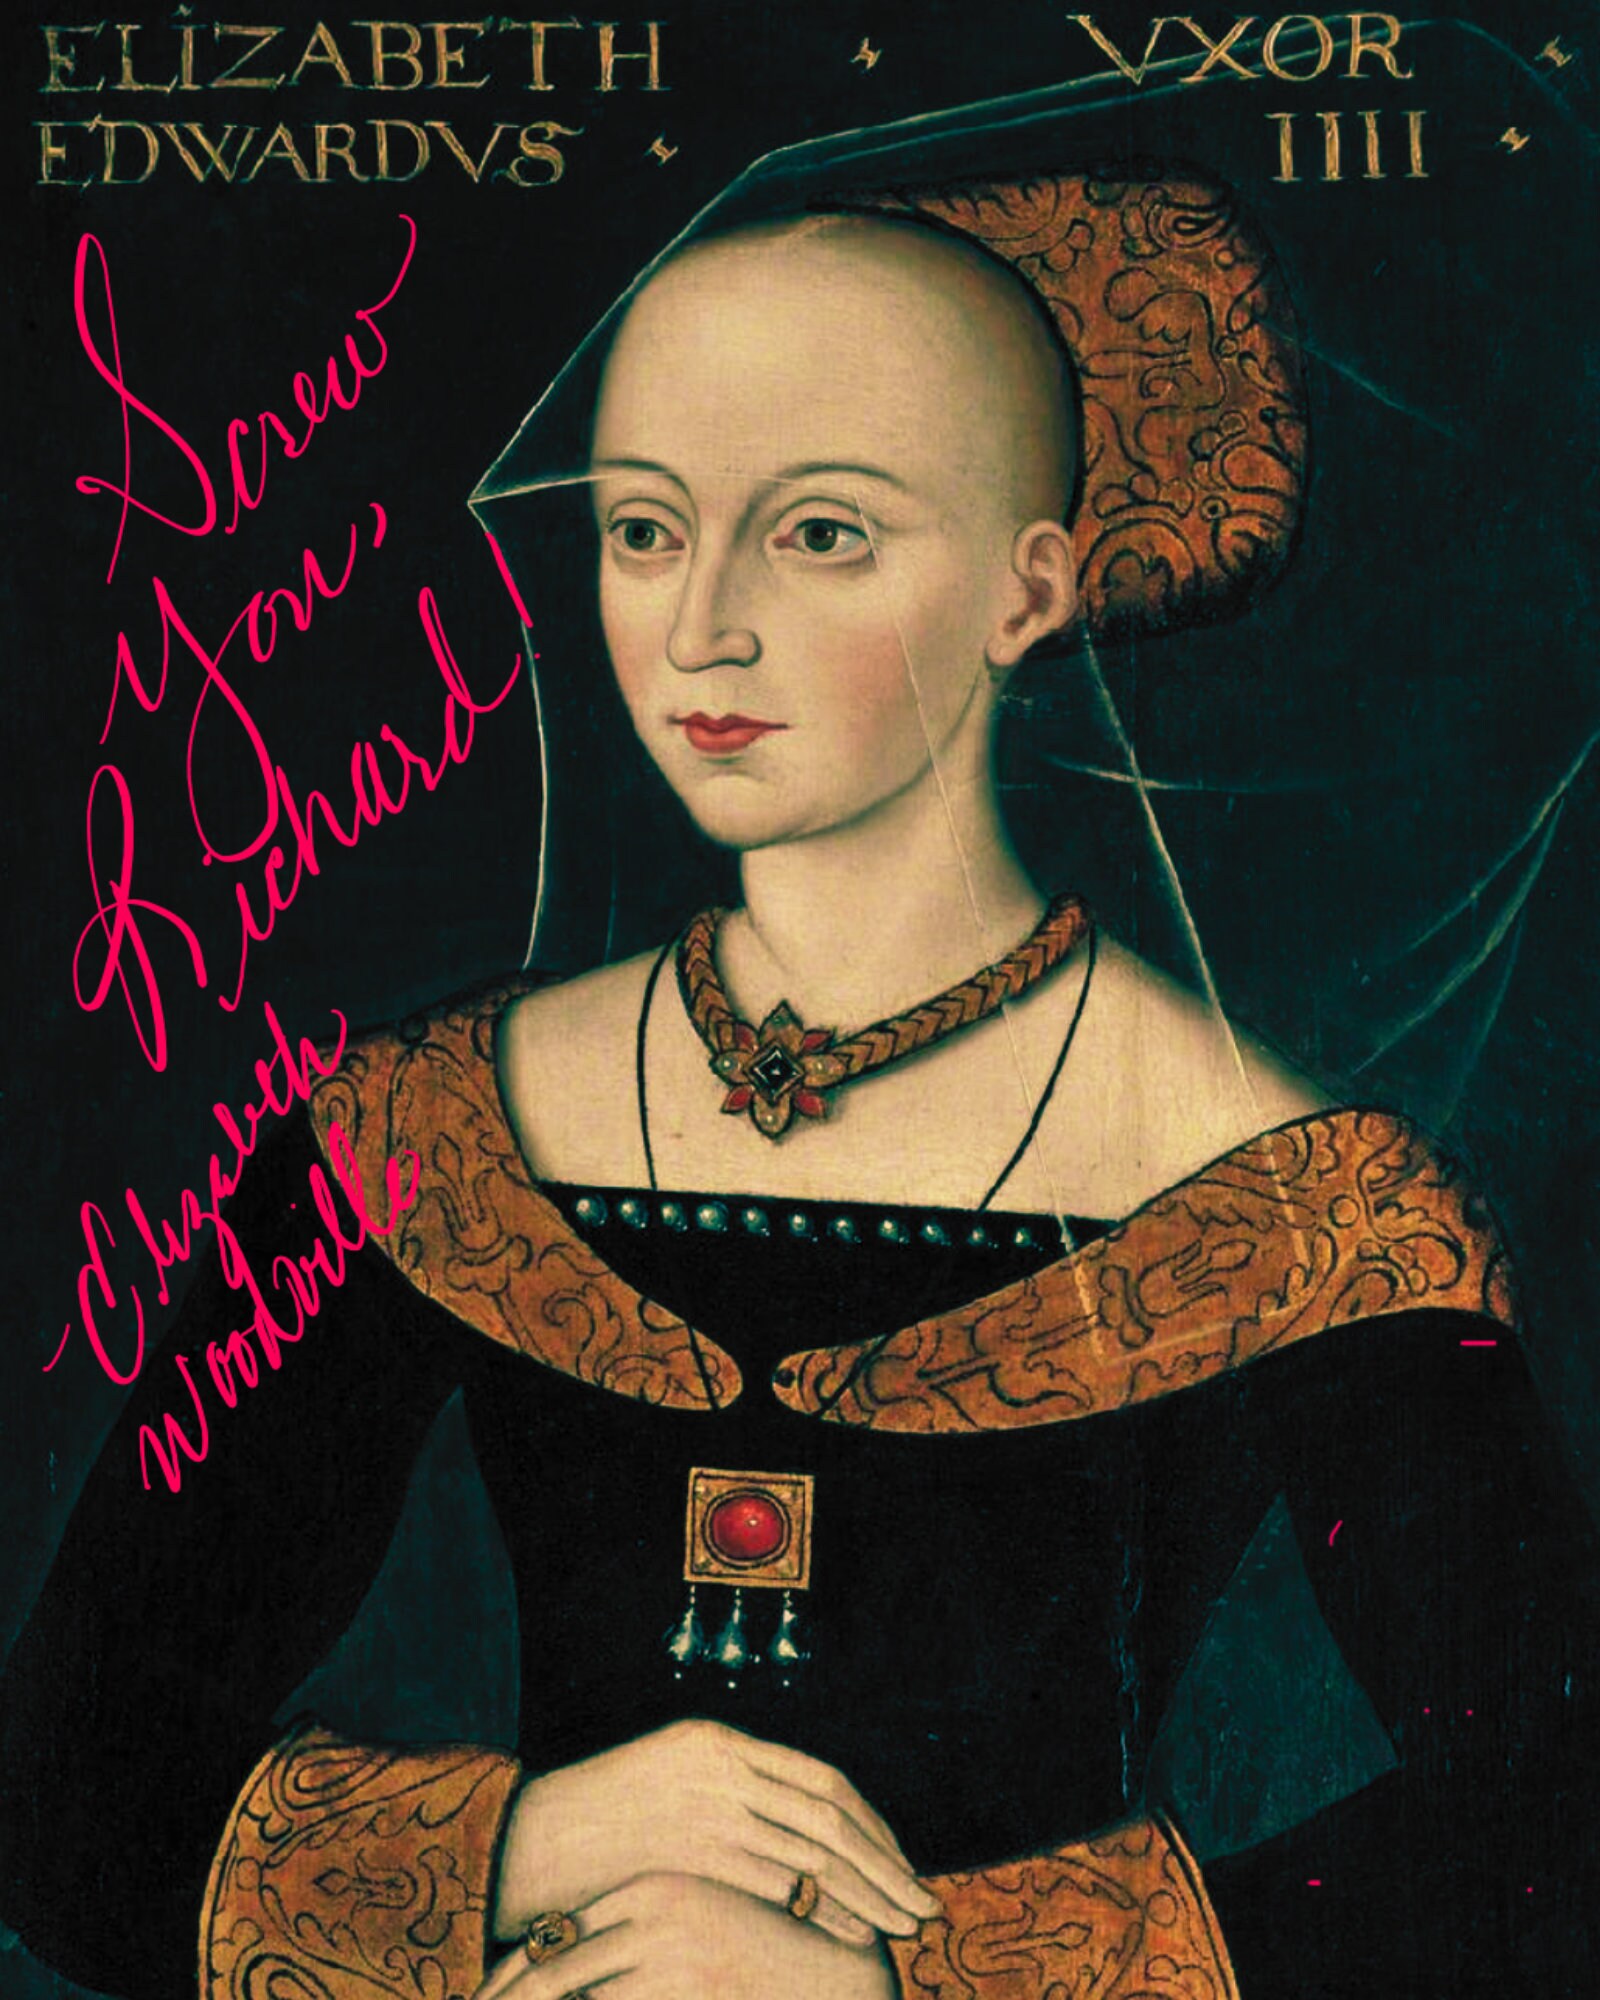 ELIZABETH VXOR
EDWARDVS IIII
Screw
You,
Richard!
-Elizabeth
Woodville